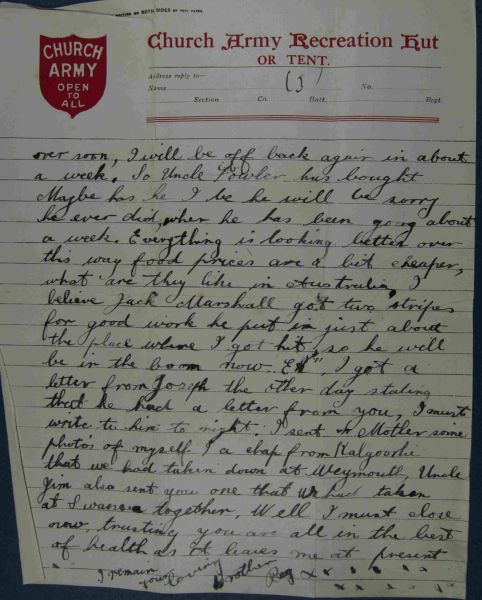 WRITING ON BOTH SIDES OF THIS PAPER.
CHURCH
ARMY
OPEN
TO
ALL
Church Army Recreation Hut
OR TENT.
Address reply to—
(3)
Name No.
Section Co. Batt. Regt.
over soon, I will be off back again in about
a week. So Uncle Fowler has bought
Maybe has he I be he will be sorry
he ever did, when he has been going about
a week. Everything is looking better over
this way food prices are a bit cheaper,
what are they like in Australia, I
believe Jack Marshall got two stripes
for good work he put in just about
the place where I got hit, so he will
be in the boom now. Eh", I got a
letter from Joseph the other day stating
that he had a letter from you, I must
write to him to night. I sent Mother some
photo's of myself & a chap from Kalgoorlie
that we had taken down at Weymouth, Uncle
Jim also sent you one that we had taken
at Swansea together, Well I must close
now, trusting you are all in the best
of health as it leaves me at present
I remain
your loving Brother
Reg x x x x x x x x